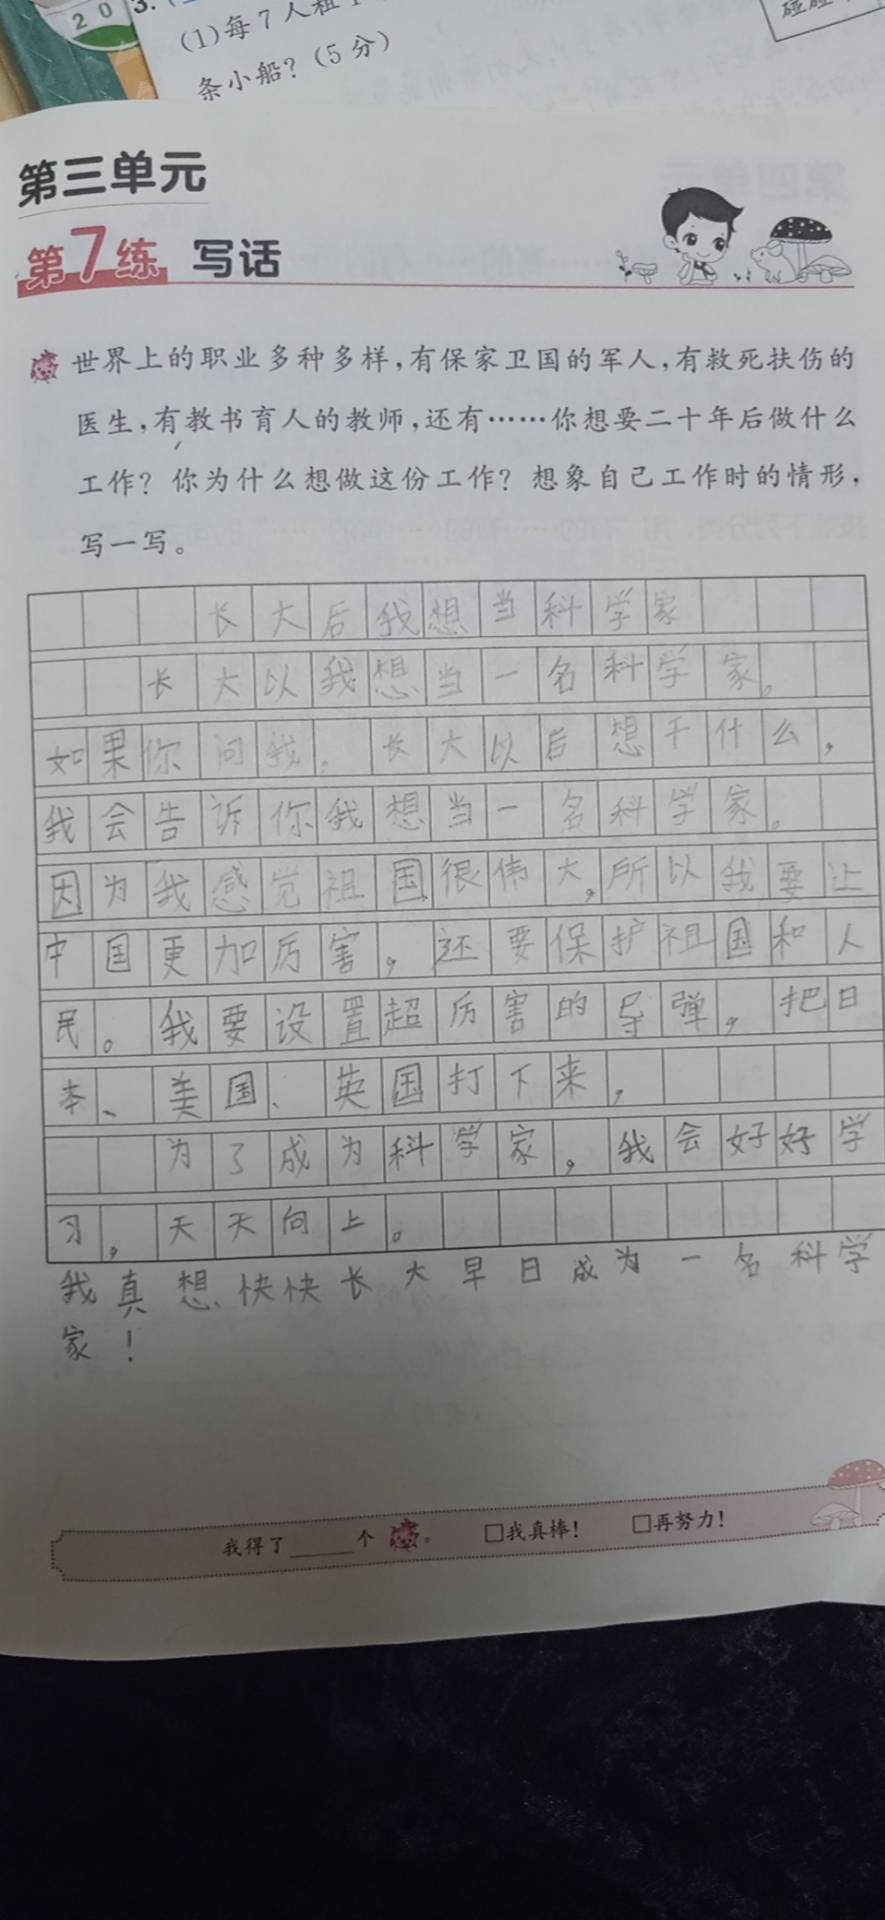 20
3.
(1)每7人租1
条小船?(5分)
第三单元
第7练 写话
世界上的职业多种多样,有保家卫国的军人,有救死扶伤的
医生,有教书育人的教师,还有……你想要二十年后做什么
工作?你为什么想做这份工作?想象自己工作时的情形,
写一写。
长大后我想当科学家
长大以我想当一名科学家。
如果你问我。长大以后想干什么,
我会告诉你我想当一名科学家。
因为我感觉祖国很伟大,所以我要让
中国更加厉害,还要保护祖国和人
民。我要设置超厉害的导弹,把日
本、美国、英国打下来,
为了成为科学家,我会好好学
习,天天向上。
我真想快快长大早日成为一名科学
家!
我得了____个。 □我真棒! □再努力!